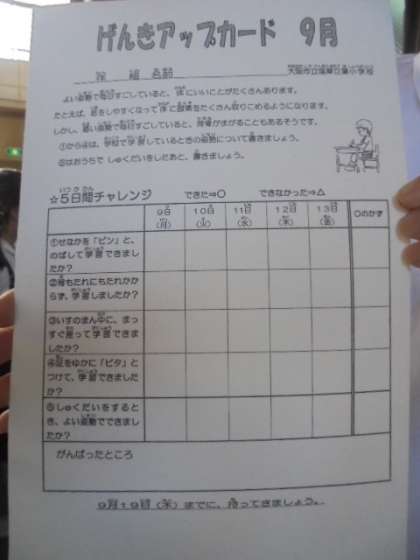 げんきアップカード 9月
年 組 名前
よい姿勢で毎日すごしていると、体にいいことがたくさんあります。
たとえば、息をしやすくなって体に酸素をたくさん取りこめるようになります。
しかし、悪い姿勢で毎日すごしていると、背骨がまがることもあるそうです。
①から④は、学校で学習しているときの姿勢について書きましょう。
⑤はおうちで しゅくだいをしたあと、書きましょう。
☆5日間チャレンジ できた→○ できなかった→△
9日(月) 10日(火) 11日(水) 12日(木) 13日(金) ○のかず
①せなかを「ピン」と、
のばして学習できまし
たか？
②背もたれにもたれかか
らず、学習しましたか？
③いすのまん中に、まっ
すぐ座って学習できま
したか？
④足をゆかに「ピタ」と
つけて、学習できました
か？
⑤しゅくだいをすると
き、よい姿勢でできまし
たか？
がんばったところ
9月19日(木)までに、持ってきましょう。